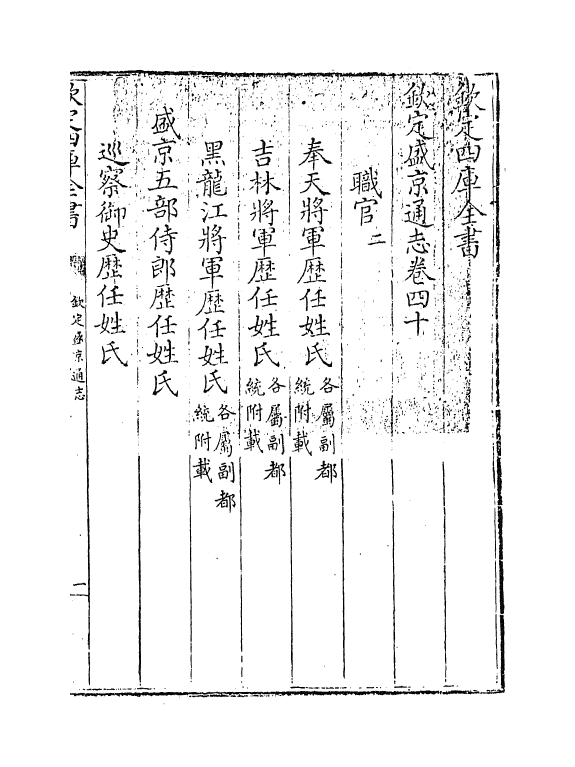 欽定四庫全書
欽定盛京通志卷四十
職官二
奉天將軍歷任姓氏各屬副都統附載
吉林將軍歷任姓氏各屬副都統附載
黑龍江將軍歷任姓氏各屬副都統附載
盛京五部侍郎歷任姓氏
巡察御史歷任姓氏
欽定四庫全書
欽定盛京通志
一